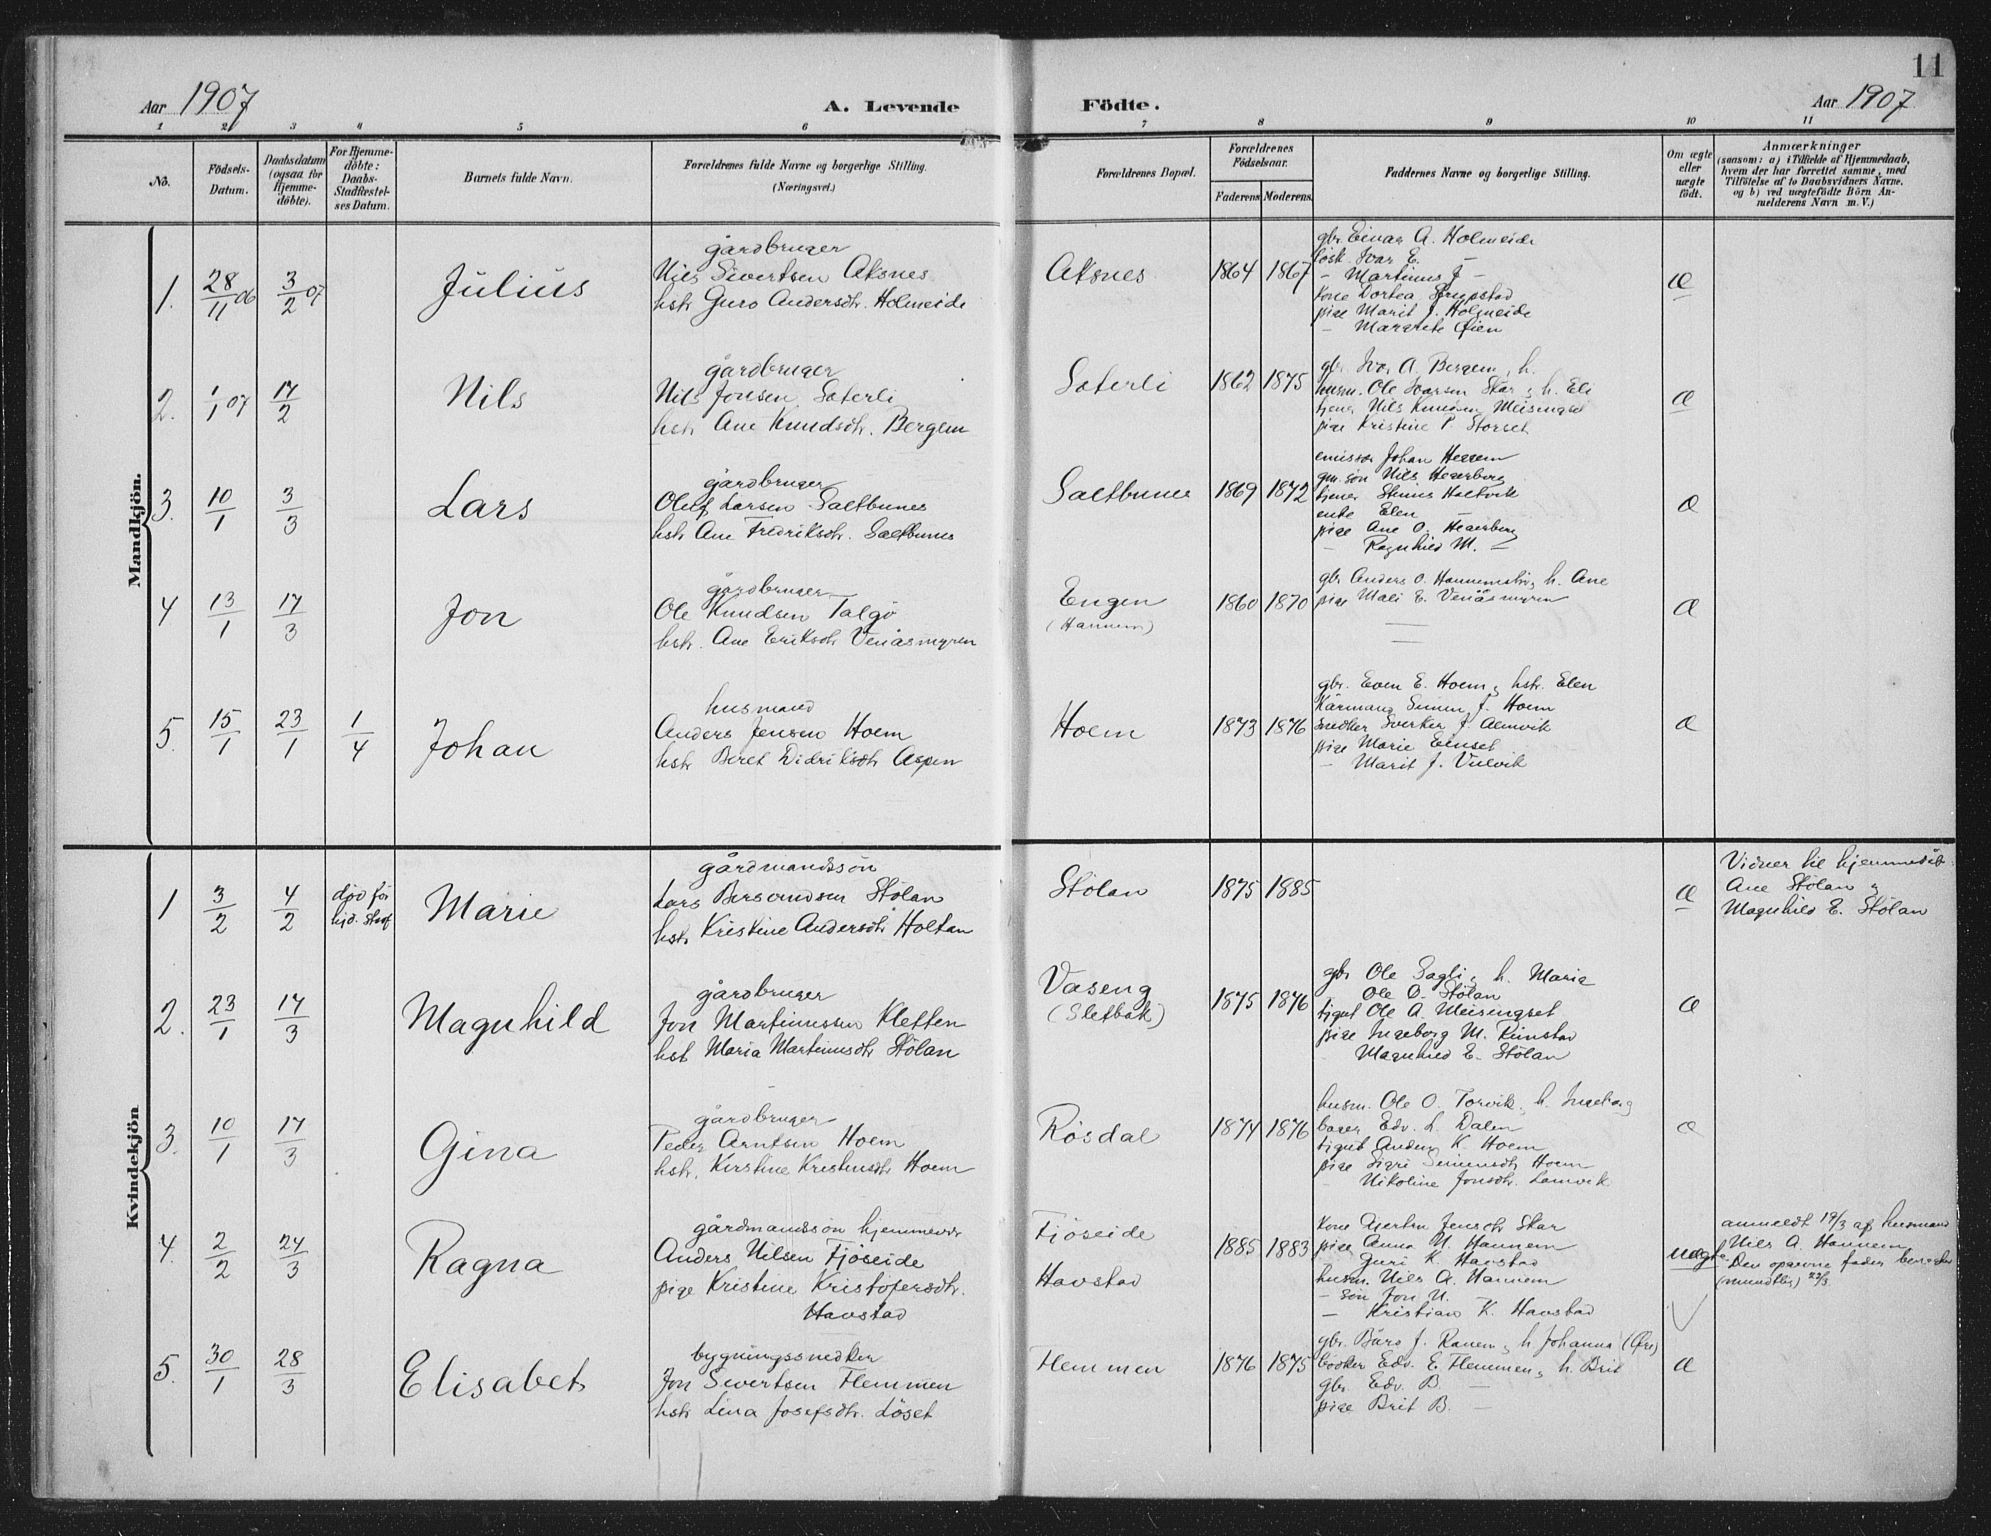 11
Aar 1907
A. Levende
Födte.
Aar 1907
1 2 3 4 5 6 7 8 9 10 11
No.
Födsels-
Datum.
Daabsdatum
(ogsaa for
Hjemme-
döbte).
For Hjemme-
döbte:
Daabs-
Stadfæstel-
ses Datum.
Barnets fulde Navn.
Forældrenes fulde Navne og borgerlige Stilling.
(Næringsvei.)
Forældrenes Bopæl.
Forældrenes
Födselsaar.
Faderens Moderens.
Faddernes Navne og borgerlige Stilling.
Om ægte
eller
uægte
födt.
Anmærkninger
(saasom: a) i Tilfælde af Hjemmedaab,
hvem der har forrettet samme, med
Tilföielse af to Daabsvidners Navne,
og b) ved uægtefödte Börn An-
melderens Navn m. V.)
Mandkjön.
1. 28/11 06 3/2 07 Julius
gårdbruger
Nils Sivertsen Aksnes
hstr Guro Andersdtr. Holmeide
Aksnes 1864 1867
gbr. Einar A. Holmeide
losk. Ivar E. —
– Martinus J —
kone Dortea
pige Marit J. Holmeide
– Margrete Øien
Æ
2. 1/1 07 17/2 Nils
gårdbruger
Nils Jonsen Sæterli
hstr Ane Knudsdtr. Bergem
Sæterli 1862 1875
gbr. Ivar A. Bergem, h.
husm. Ole Ivarsen Skar, h. Eli
tjener Nils Knudsen Meisingset
pige Kristine P. Storset
Æ
3. 10/1 3/3 Lars
gårdbruger
Oluf Larsen Saltbunes
hstr Ane Fredriksdtr. Saltbunes
Saltbunes 1869 1872
emissær Johan Heggem
gm.søn Nils Hegerberg
tjener Stinus Holtvik
enke Elen —
pige Ane O. Hegerberg
– Ragnhild M. —
Æ
4 13/1 17/3 Jon
gårdbruger
Ole Knudsen Talgø
hstr. Ane Eriksdtr Venåsmyren
Engen
(Hannem)
1860 1870
gbr Anders O. Hannemsbø, h. Ane
pige Mali E. Venåsmyren
Æ
5. 15/1 23/1 1/4 Johan
husmand
Anders Jensen Hoem
hstr Beret Didriksdtr Aspen
Hoem 1873 1876
gbr. Even E. Hoem, hstr. Elen
Kårmand Simen J. Hoem
snedker Sverker J. Almvik
pige Marie Einset
– Marit J. Vulvik
Æ
Kvindekjön
1 3/2 4/2 død før
hjd. stadf
Marie
gårdmandssøn
Lars Bersvendsen Stølan
hstr Kristine Andersdtr Holtan
Stölan 1875 1885
Æ
Vidner til hjemmedåb
Ane Stölan &
Magnhild E. Stölan
2. 23/1 17/3 Magnhild
gårdbruger
Jon Martinussen Kletten
hst Maria Martinusdtr Stölan
Vaseng
(Sletbak)
1875 1876
gbr Ole Sagli, h. Maria
Ole O. Stölan
ugut Ole A. Meisingset
pige Ingeborg M. Rimstad
Magnhild E. Stölan
Æ
3. 10/1 17/3 Gina
gårdbruger
Peder Arntsen Hoem
hstr. Kirstine Kristensdtr Hoem
Røsdal 1874 1876
husm. Ole O. Torvik, h. Ingeborg
bager Edv. L. Dalen
ugut Anders K. Hoem
pige Sigri Simensdtr Hoem
Nikoline Jonsdtr. Lamvik
Æ
4. 2/2 24/3 Ragna
gårdmandssøn hjemmevær
Anders Nilsen Fjøseide
pige Kristine Kristofersdtr.
Havstad
Fjöseide
Havstad
1885 1883
kone Gjertru Jensdtr Skar
pige Anna N. Hannem
Guri K. Havstad
husm. Nils A. Hannem
– søn Jon N.
– Kristian K. Havstad
Uægte
anmeldt 17/3 af husmand
Nils A. Hannem
Den opgivne fader benegter
(mundtlig) 22/3
5. 30/1 28/3 Elisabet
bygningssnedker
Jon Sivertsen Flemmen
hstr Lina Josefsdtr. Löset
Flemmen 1876 1875
gbr. Bård J. Ranem, h Johanna (Øre)
bødker Edv. E. Flemmen, h. Brit
gbr. Edv. B. —
pige Brit B. —
Æ